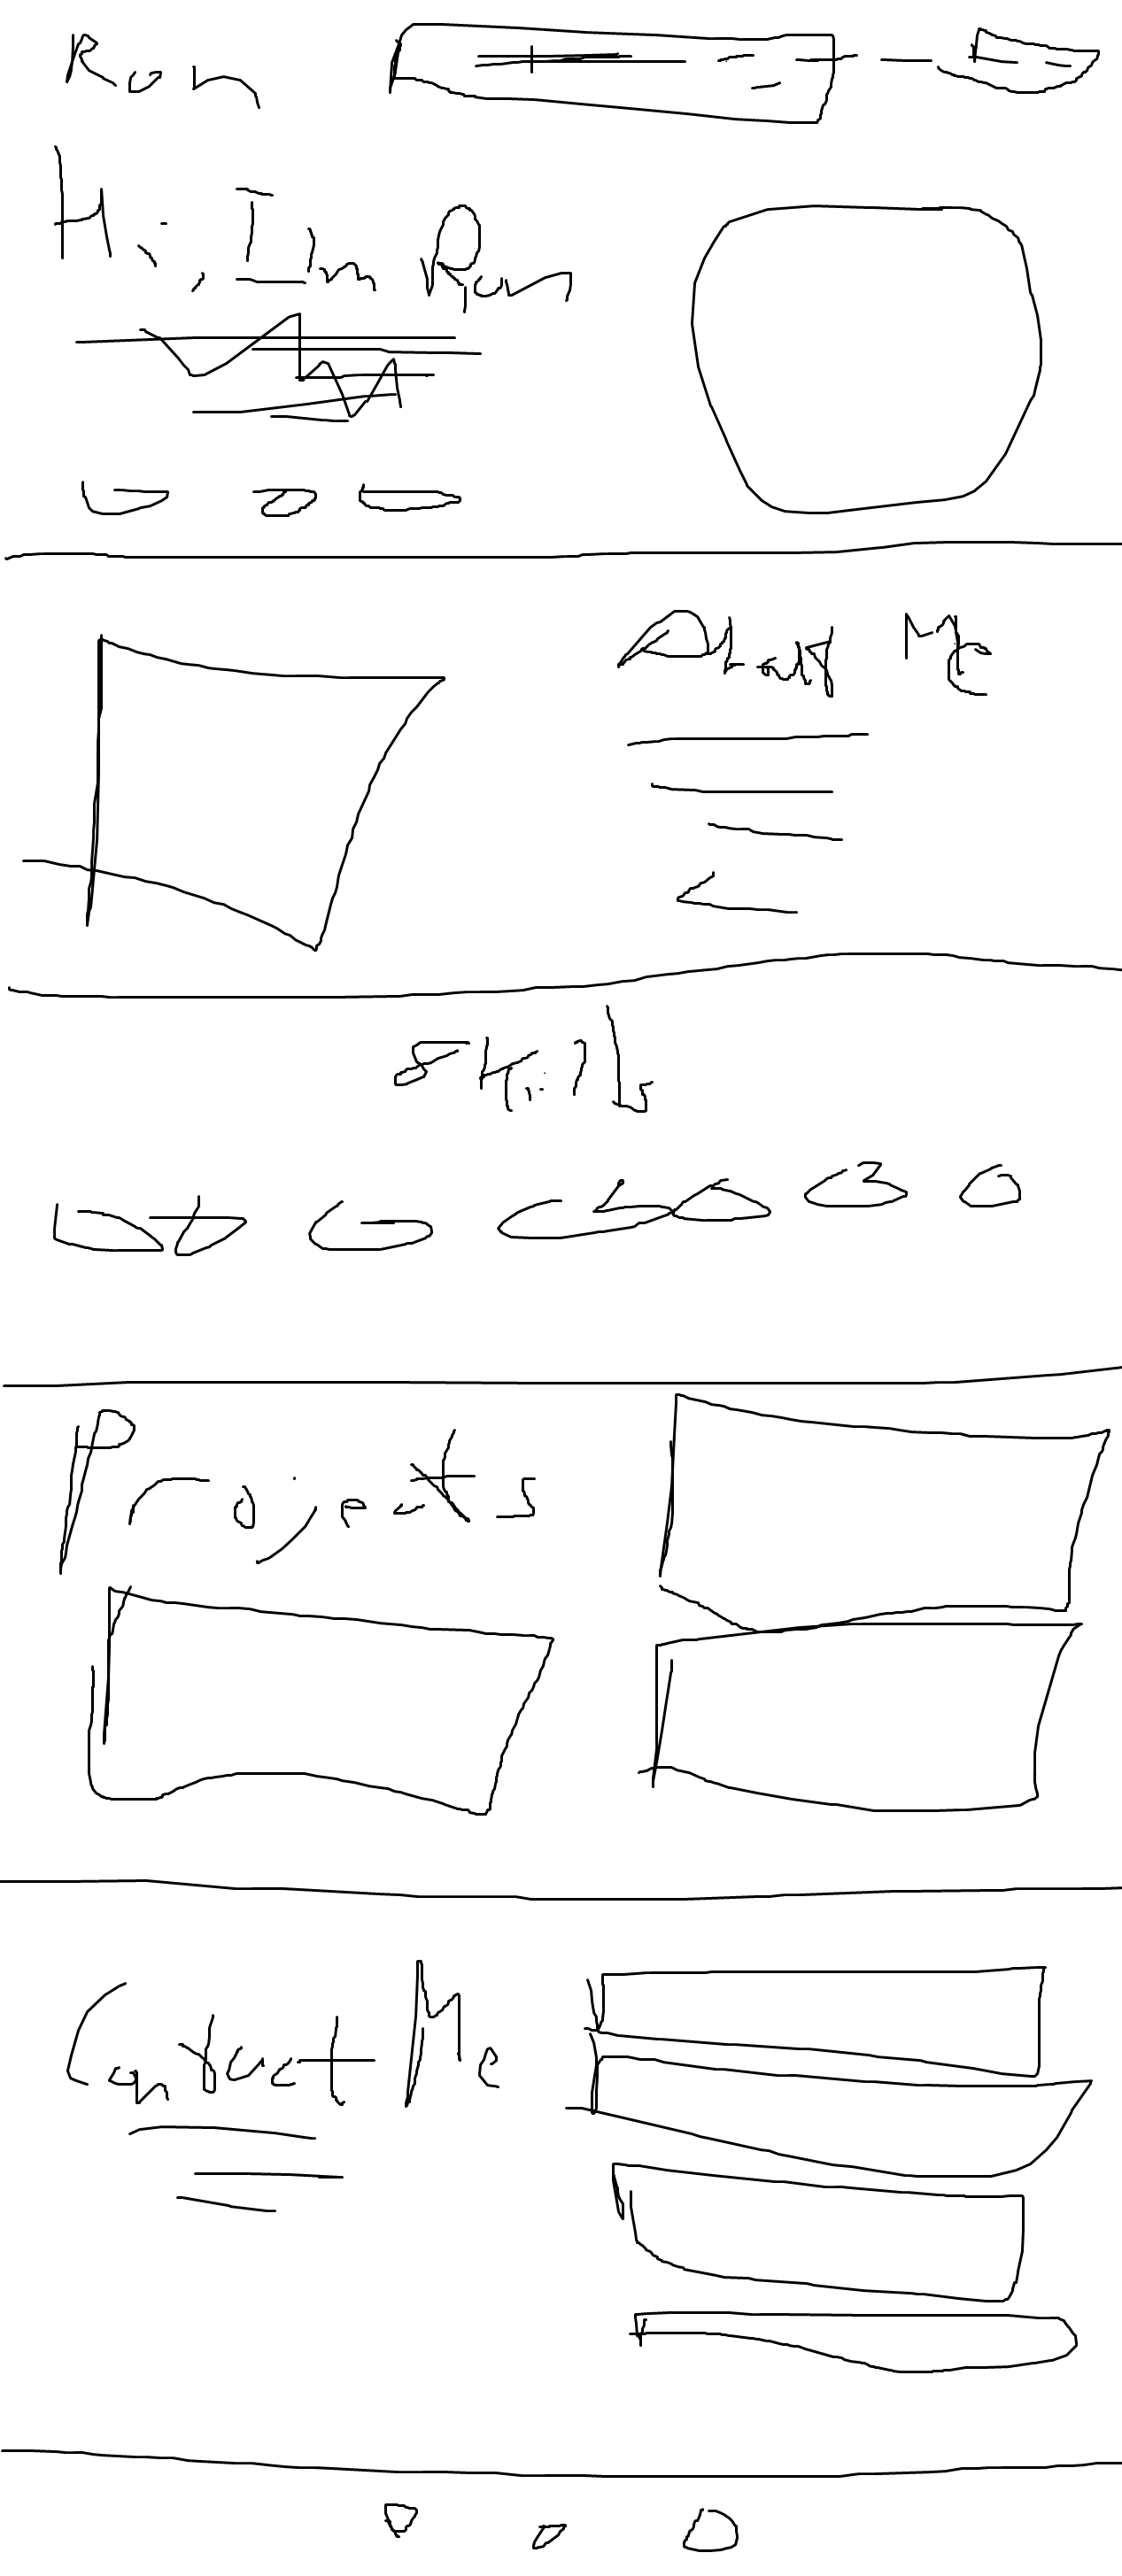 Ron
Hi, I'm Ron
About Me
Skills
Projects
Contact Me